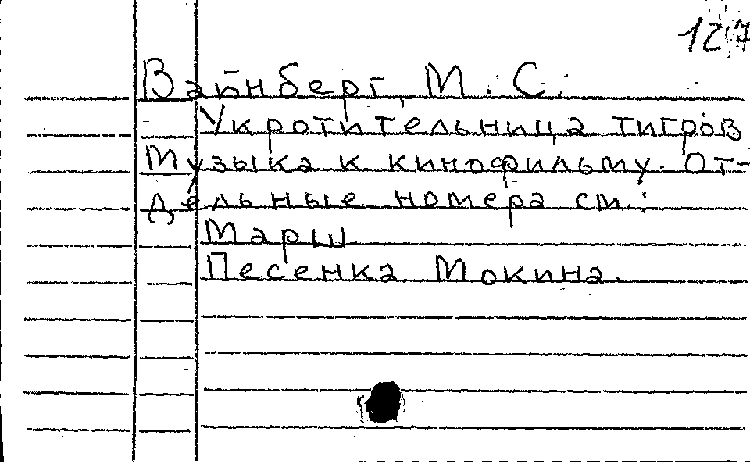 127
Вайнберг, М. С.
Укротительница тигров
Музыка к кинофильму. От-
дельные номера см.:
Марш
Песенка Мокина.